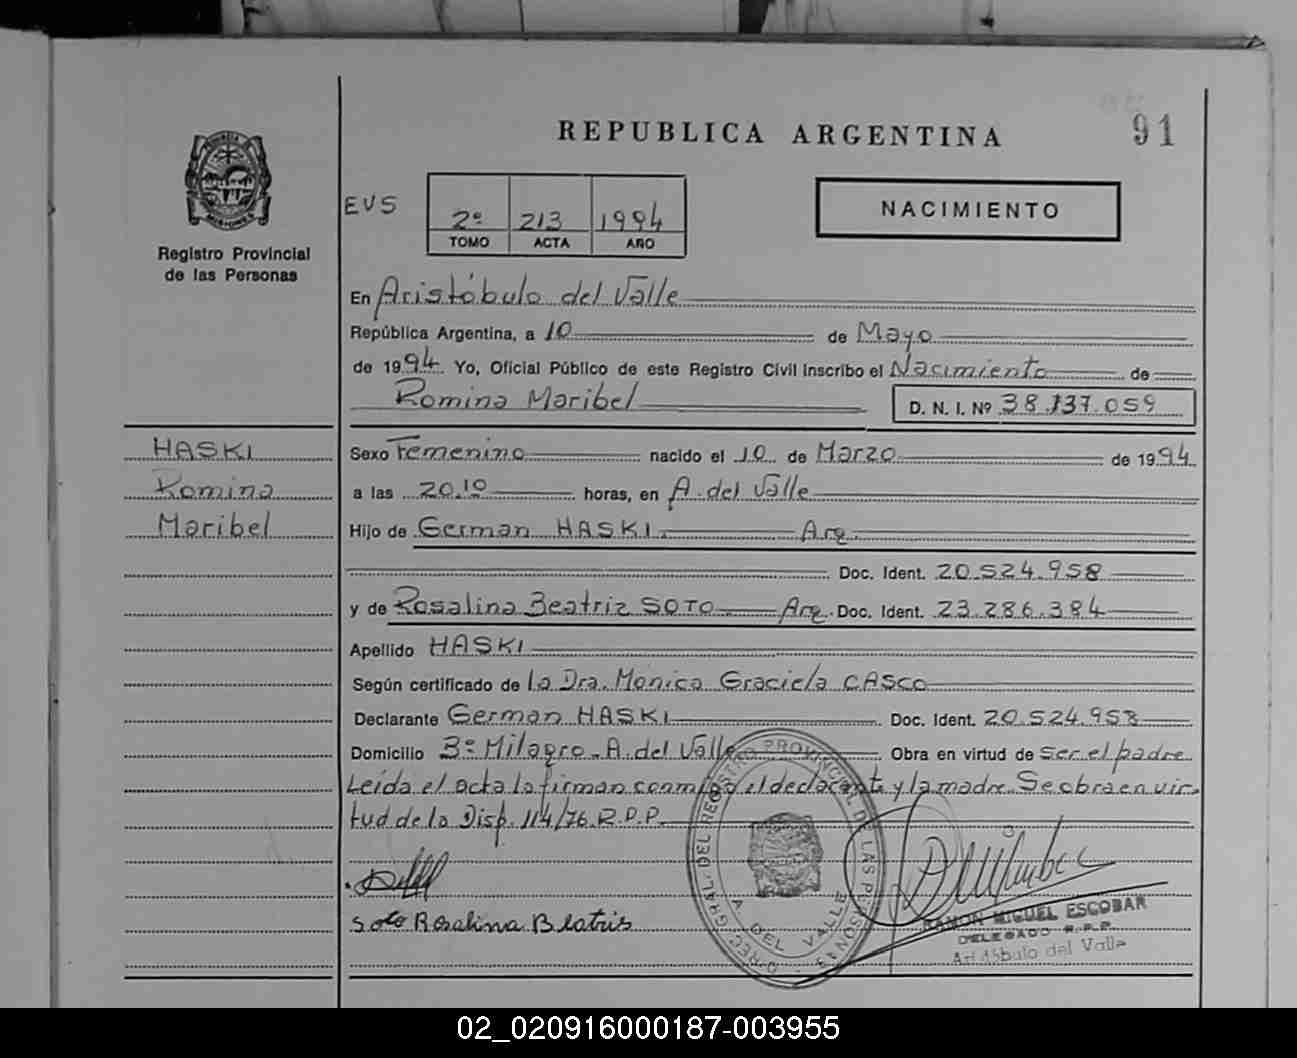 REPUBLICA ARGENTINA
91
Registro Provincial
de las Personas
EVS
2º 213 1994
TOMO ACTA AÑO
NACIMIENTO
En Aristóbulo del Valle
República Argentina, a 10 de Mayo
de 1994. Yo, Oficial Público de este Registro Civil inscribo el Nacimiento de
Romina Maribel D. N. I. Nº 38.137.059
HASKI
Romina
Maribel
Sexo Femenino nacido el 10 de Marzo de 1994
a las 20.10 horas, en A. del Valle
Hijo de German HASKI. Arg.
Doc. Ident. 20.524.958
y de Rosalina Beatriz SOTO. Arg. Doc. Ident. 23.286.384
Apellido HASKI
Según certificado de la Dra. Mónica Graciela CASCO
Declarante German HASKI Doc. Ident. 20.524.958
Domicilio Bº Milagro - A. del Valle Obra en virtud de ser el padre
Leída el acta la firman conmigo el declarante y la madre. Se obra en vir-
tud de la Disp. 114/76. R.P.P.
Soto Rosalina Beatris
DIREC. GRAL. DEL REGISTRO PROVINCIAL DE LAS PERSONAS
A. DEL VALLE
RAMON MIGUEL ESCOBAR
DELEGADO R.P.P.
Aristóbulo del Valle
02_020916000187-003955